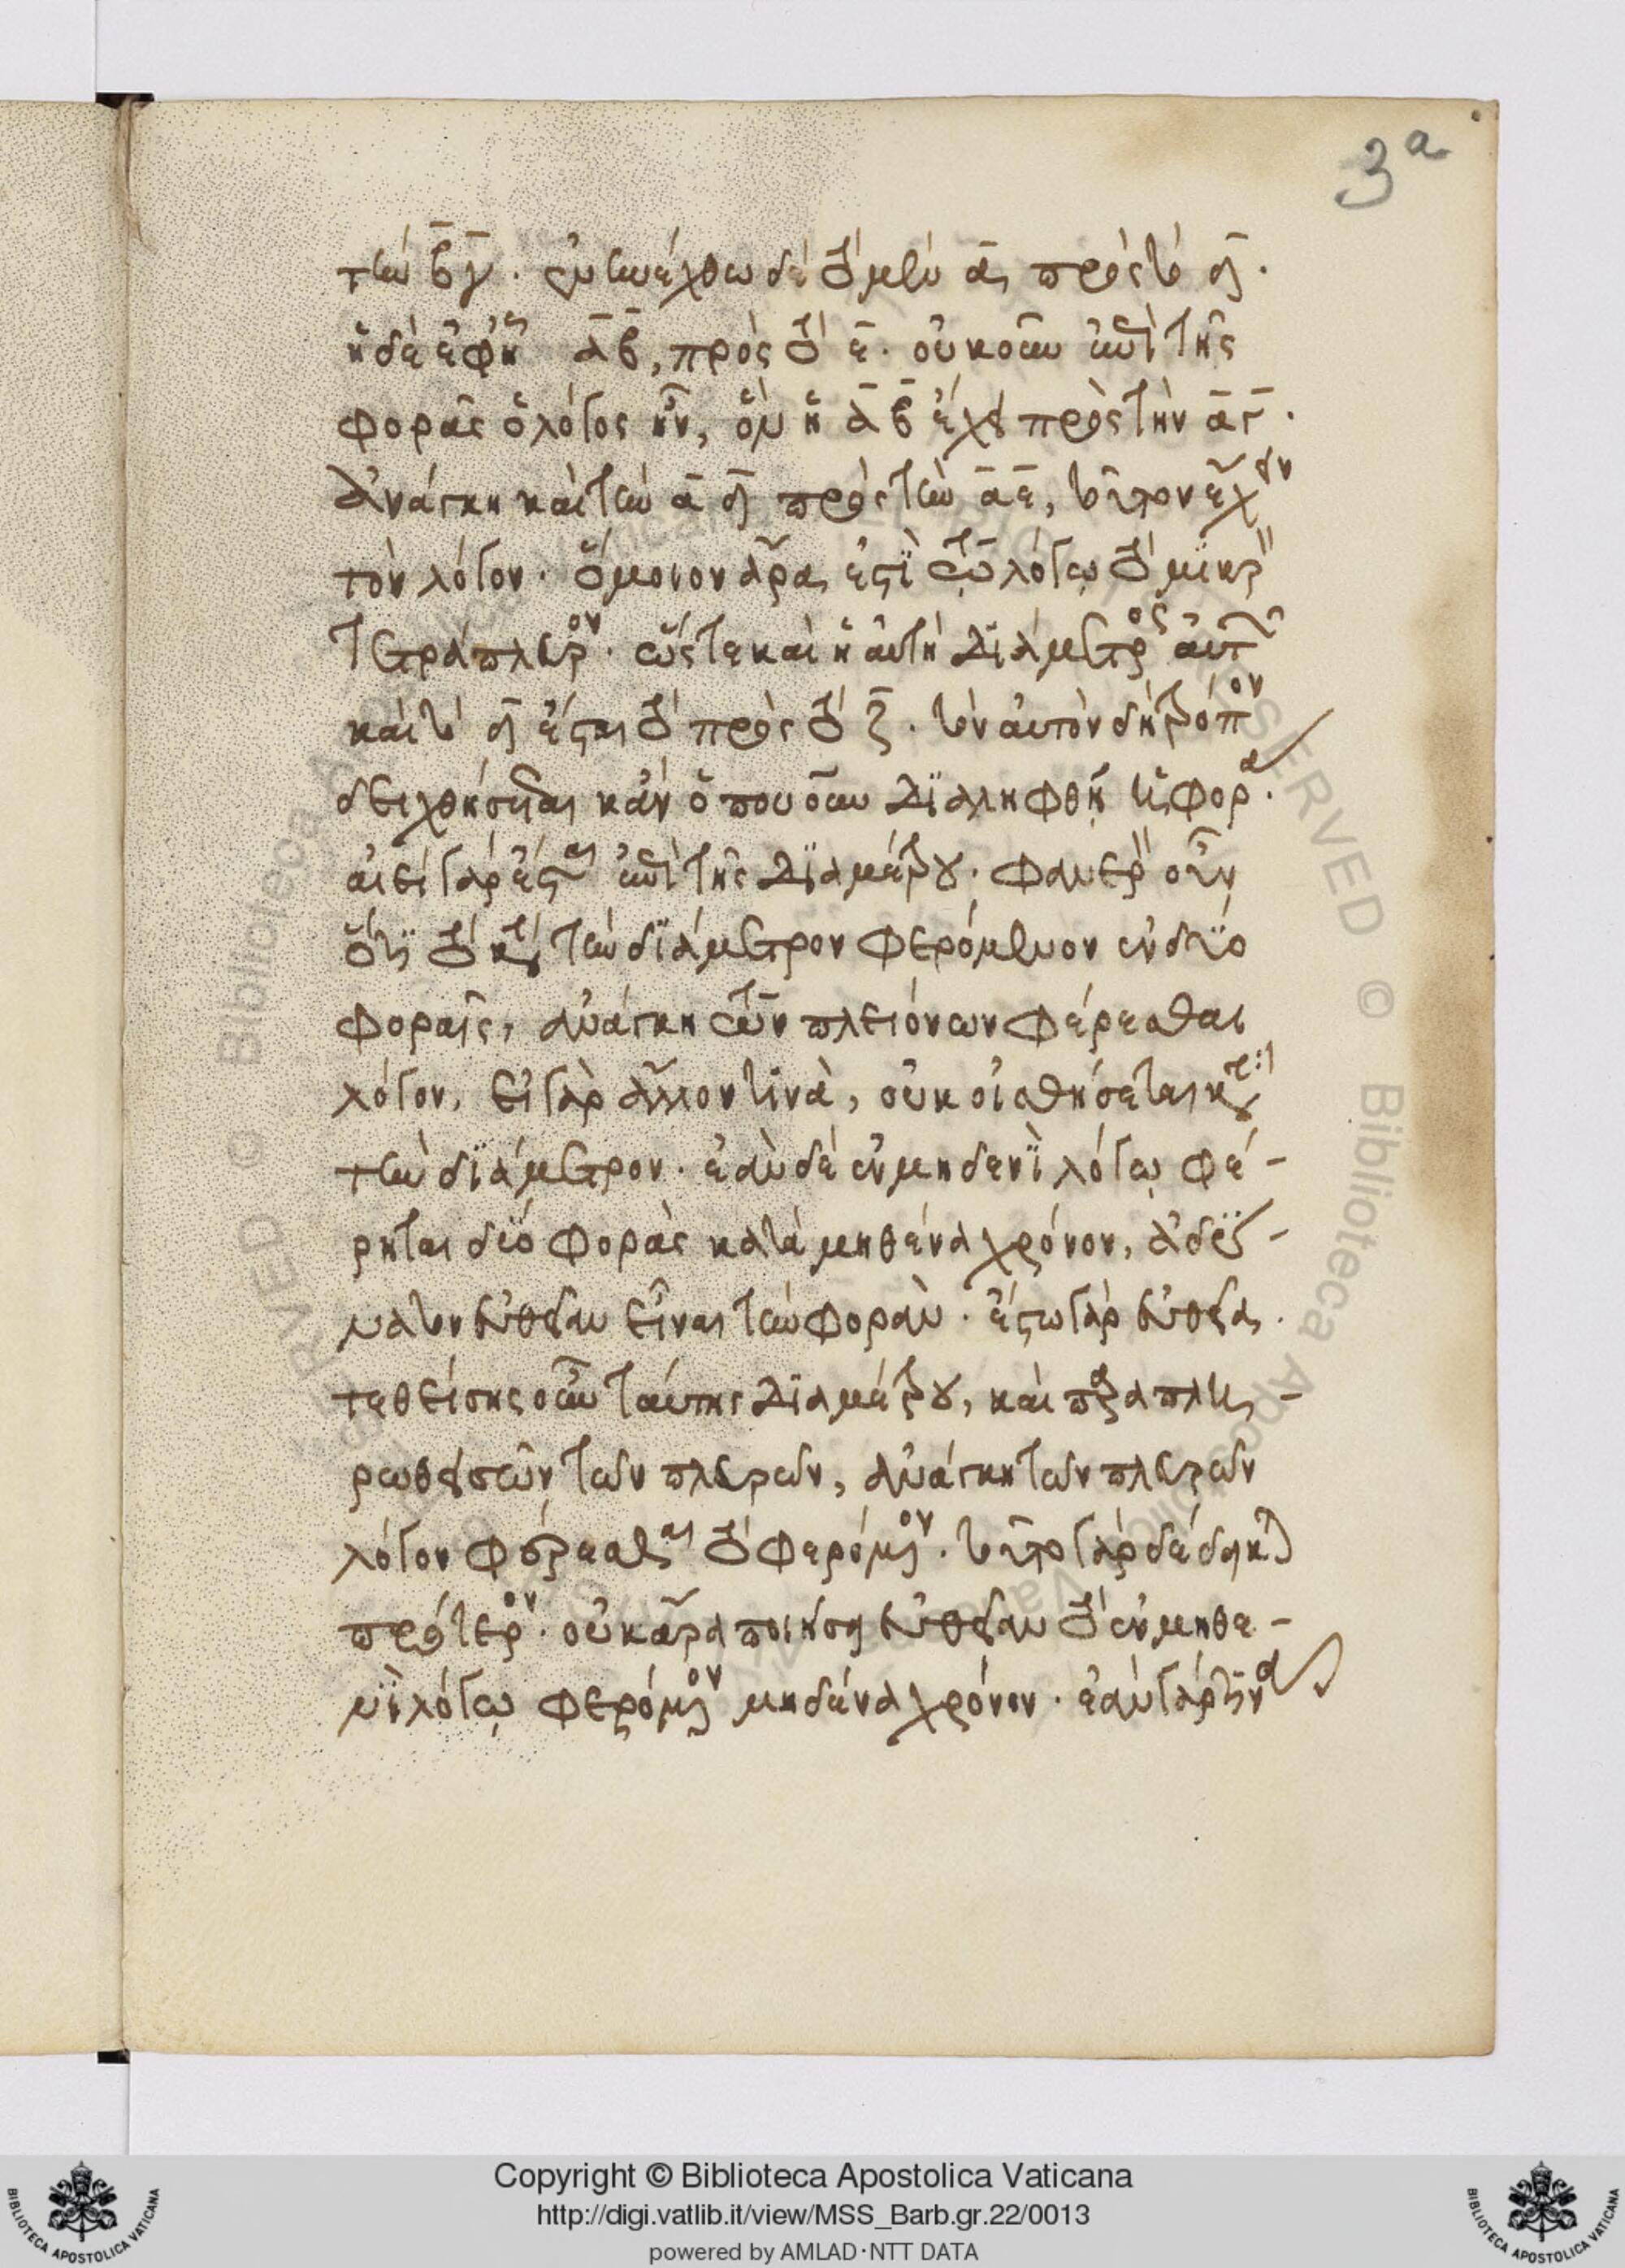 3ª
τὴν β̅γ̅. ἐνηνέχθω δὲ τὸ μὲν α̅ πρὸς τὸ δ̅.
ἡ δὲ ἐφ' ᾗ α̅β̅, πρὸς τὸ ε̅. οὐκοῦν ἐπὶ τῆς
φορᾶς ὁ λόγος ἦν, ὃν ἡ α̅β̅ ἔχει πρὸς τὴν α̅γ̅.
ἀνάγκη καὶ τὴν α̅δ̅ πρὸς τὴν α̅ε̅, τοῦτον ἔχειν
τὸν λόγον. ὅμοιον ἄρα ἐστὶ τῷ λόγῳ τὸ μικρὸν
τετράπλευρον. ὥστε καὶ ἡ αὐτὴ διάμετρος αὐτῶν
καὶ τὸ α̅ ἔσται τὸ πρὸς τὸ ζ̅. τὸν αὐτὸν δὴ τρόπον
δειχθήσεται κἂν ὅπου οὖν διαληφθῇ ἡ φορά.
αἰεὶ γὰρ ἔσται ἐπὶ τῆς διαμέτρου. φανερὸν οὖν
ὅτι τὸ κατὰ τὴν διάμετρον φερόμενον ἐν δύο
φοραῖς, ἀνάγκη τῶν πλειόνων φέρεσθαι
λόγον, εἰ γὰρ ἄλλον τινὰ, οὐκ οἰσθήσεται κατὰ
τὴν διάμετρον. ἐὰν δὲ ἐν μηδενὶ λόγῳ φέ-
ρηται δύο φορὰς κατὰ μηθένα χρόνον, ἀδύ-
νατον εὐθεῖαν εἶναι τὴν φοράν. ἔστω γὰρ εὐθεῖα.
τεθείσης οὖν ταύτης διαμέτρου, καὶ παραπλη-
ρωθεισῶν τῶν πλευρῶν, ἀνάγκη τῶν πλευρῶν
λόγον φέρεσθαι τὸ φερόμενον. τοῦτο γὰρ δέδεικται
πρότερον. οὐκ ἄρα ποιήσει εὐθεῖαν τὸ ἐν μηθε-
νὶ λόγῳ φερόμενον μηδένα χρόνον. ἐὰν γὰρ τινὰ
Copyright © Biblioteca Apostolica Vaticana
http://digi.vatlib.it/view/MSS_Barb.gr.22/0013
powered by AMLAD·NTT DATA